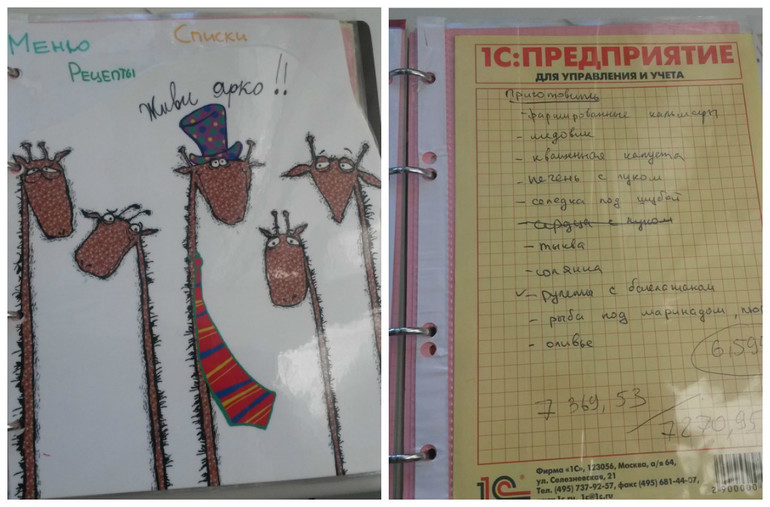 Меню
Списки
Рецепты
Живи ярко!!
1С:ПРЕДПРИЯТИЕ
ДЛЯ УПРАВЛЕНИЯ И УЧЕТА
Приготовить
- фаршированные кальмары
- медовик
- квашенная капуста
- печень с луком
- селедка под шубой
- сердца с луком
- тыква
- солянка
- рулеты с баклажанам
- рыба под маринадом,
- оливье
7 369,53
7270,95
Фирма «1С», 123056, Москва, а/я 64,
ул. Селезневская, 21
Тел. (495) 737-92-57, факс (495) 681-44-07,
1c@1c.ru
1С